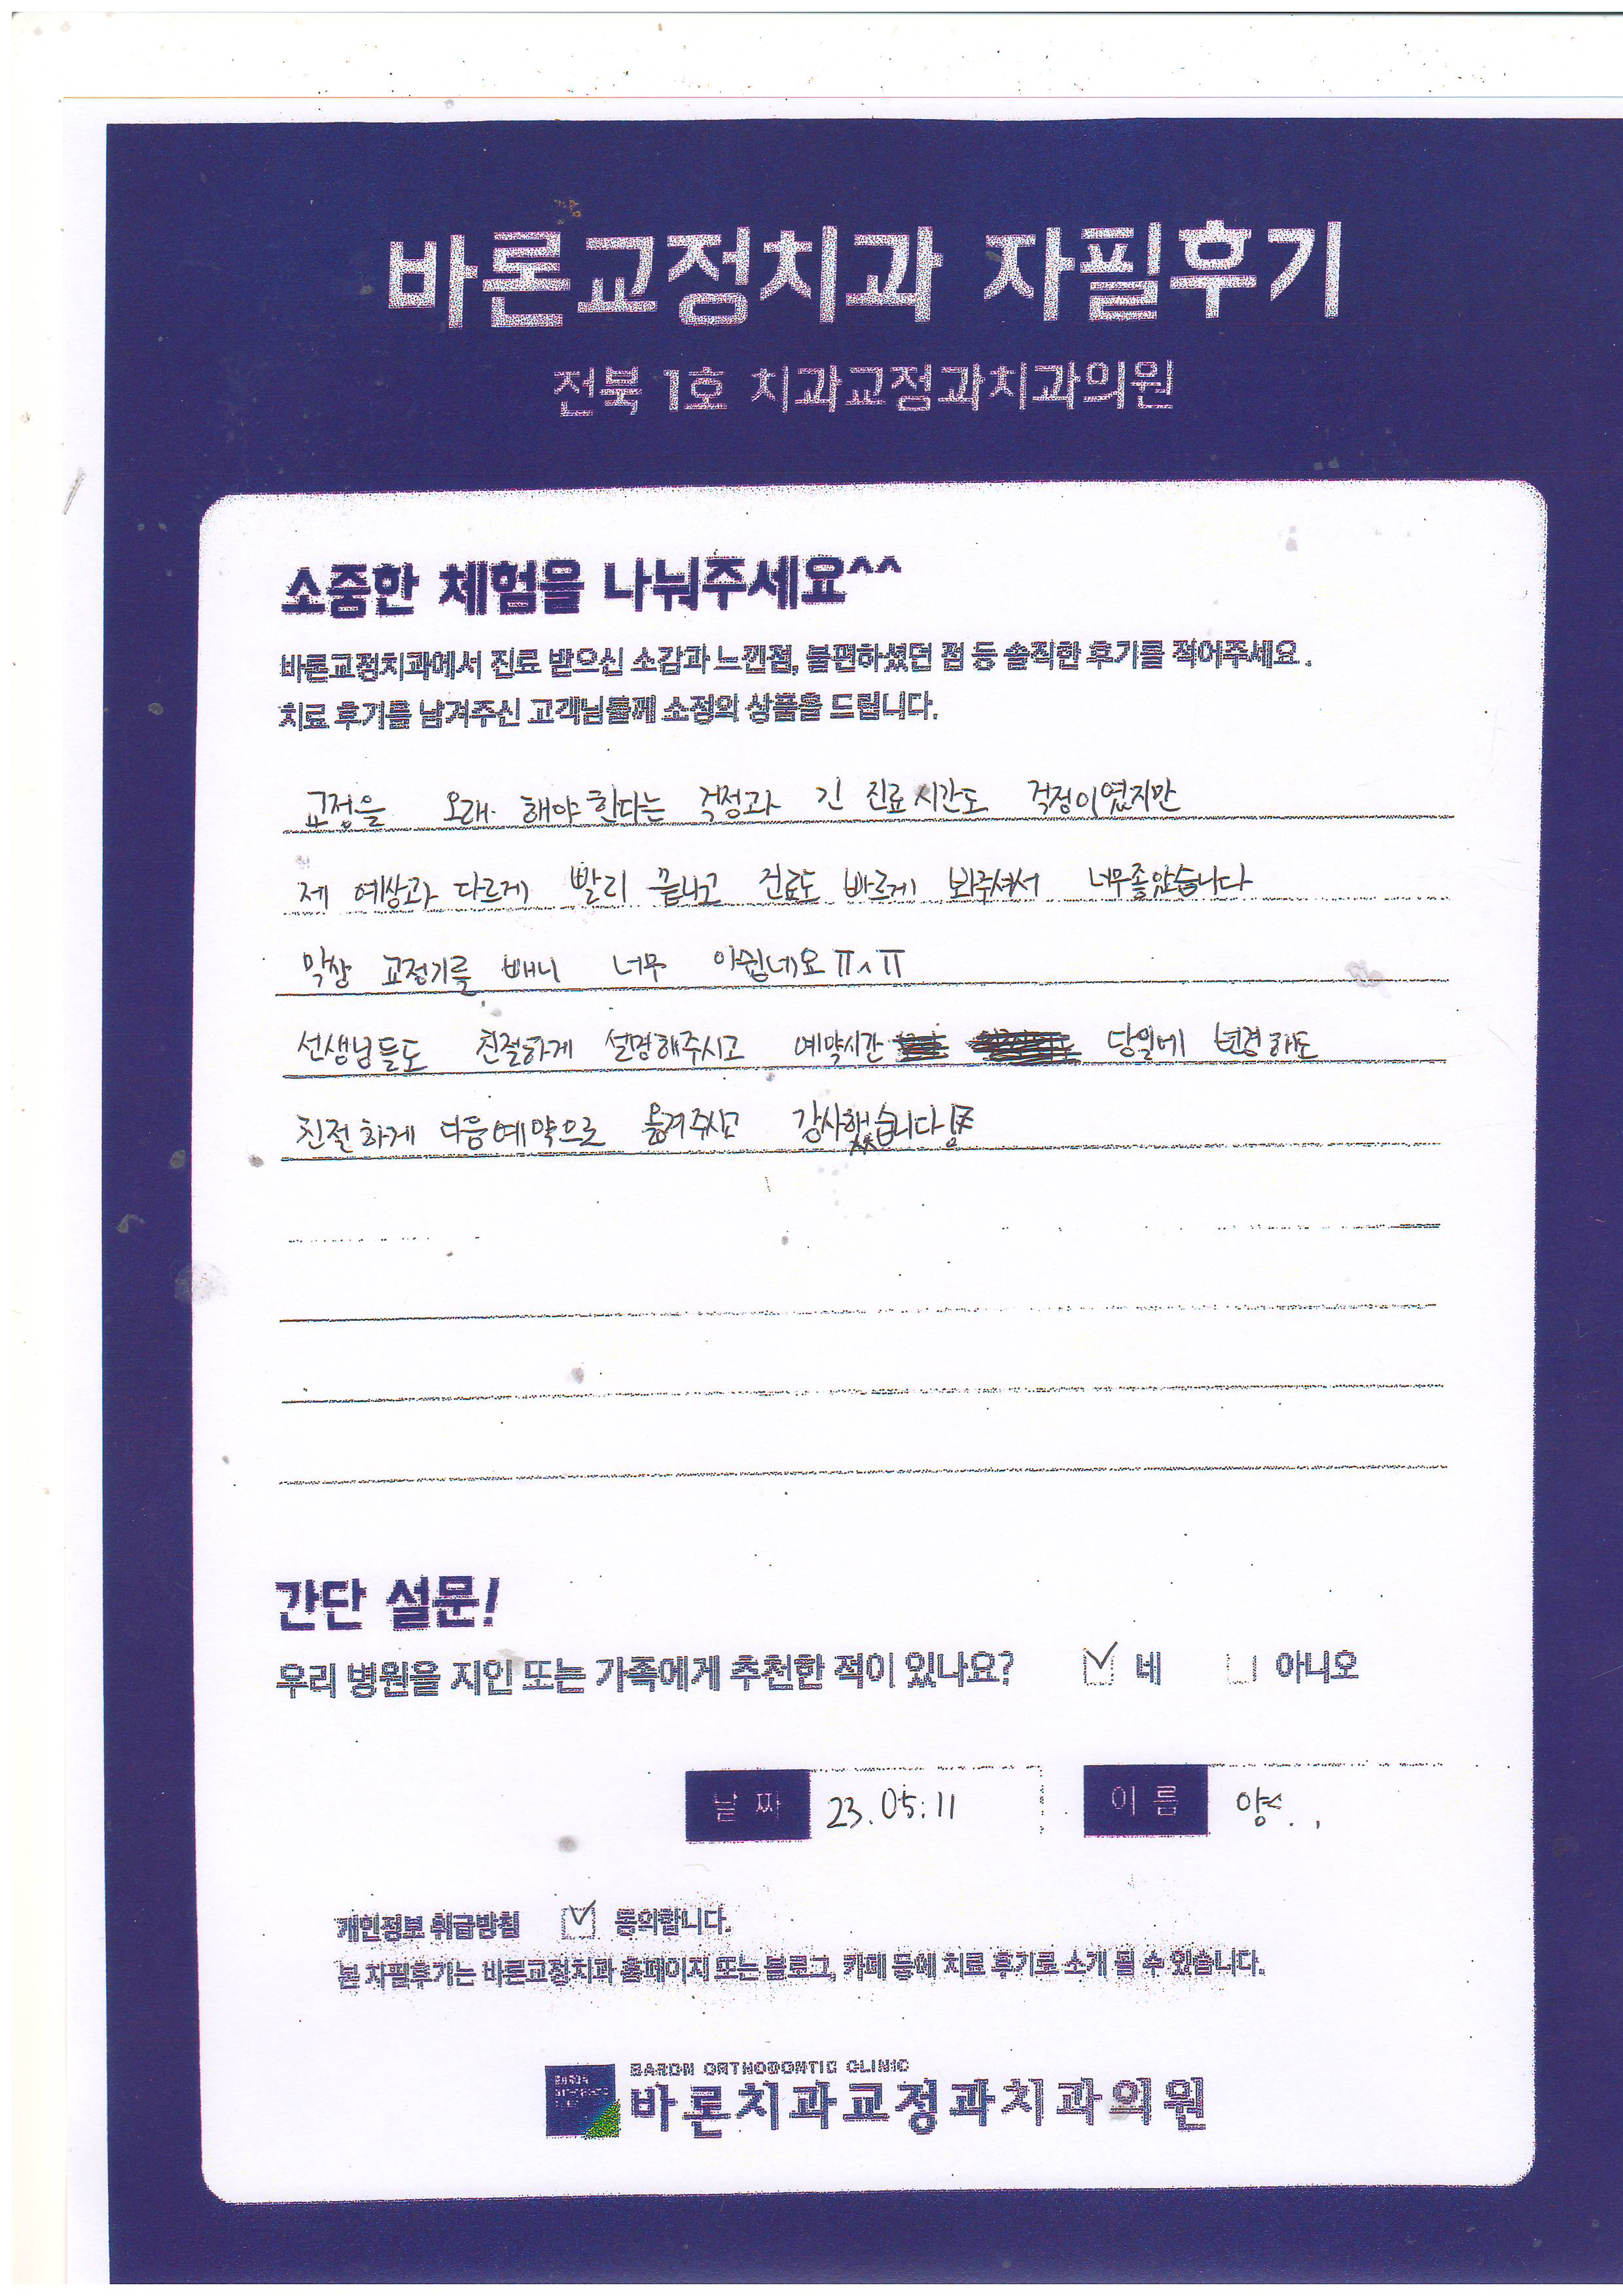 바론교정치과 자필후기
전북 1호 치과교정과치과의원
소중한 체험을 나눠주세요^^
바른교정치과에서 진료 받으신 소감과 느낀점, 불편하셨던 점 등 솔직한 후기를 적어주세요.
치료 후기를 남겨주신 고객님들께 소정의 상품을 드립니다.
교정을 오래 해야한다는 걱정과 긴 진료시간도 걱정이였지만
제 예상과 다르게 빨리 끝나고 진료도 빠르게 봐주셔서 너무좋았습니다
막상 교정기를 빼니 너무 아쉽네요ㅠㅅㅠ
선생님들도 친절하게 설명해주시고 예약시간 당일에 변경해도
친절하게 다음예약으로 옮겨주시고 감사했습니다
간단 설문!
우리 병원을 지인 또는 가족에게 추천한 적이 있나요? 네 아니오
날짜 23.05.11 이름 양
개인정보 취급방침 동의합니다.
본 자필후기는 바론교정치과 홈페이지 또는 블로그, 카페 등에 치료 후기로 소개 될 수 있습니다.
BARON ORTHODONTIC CLINIC
바론치과교정과치과의원